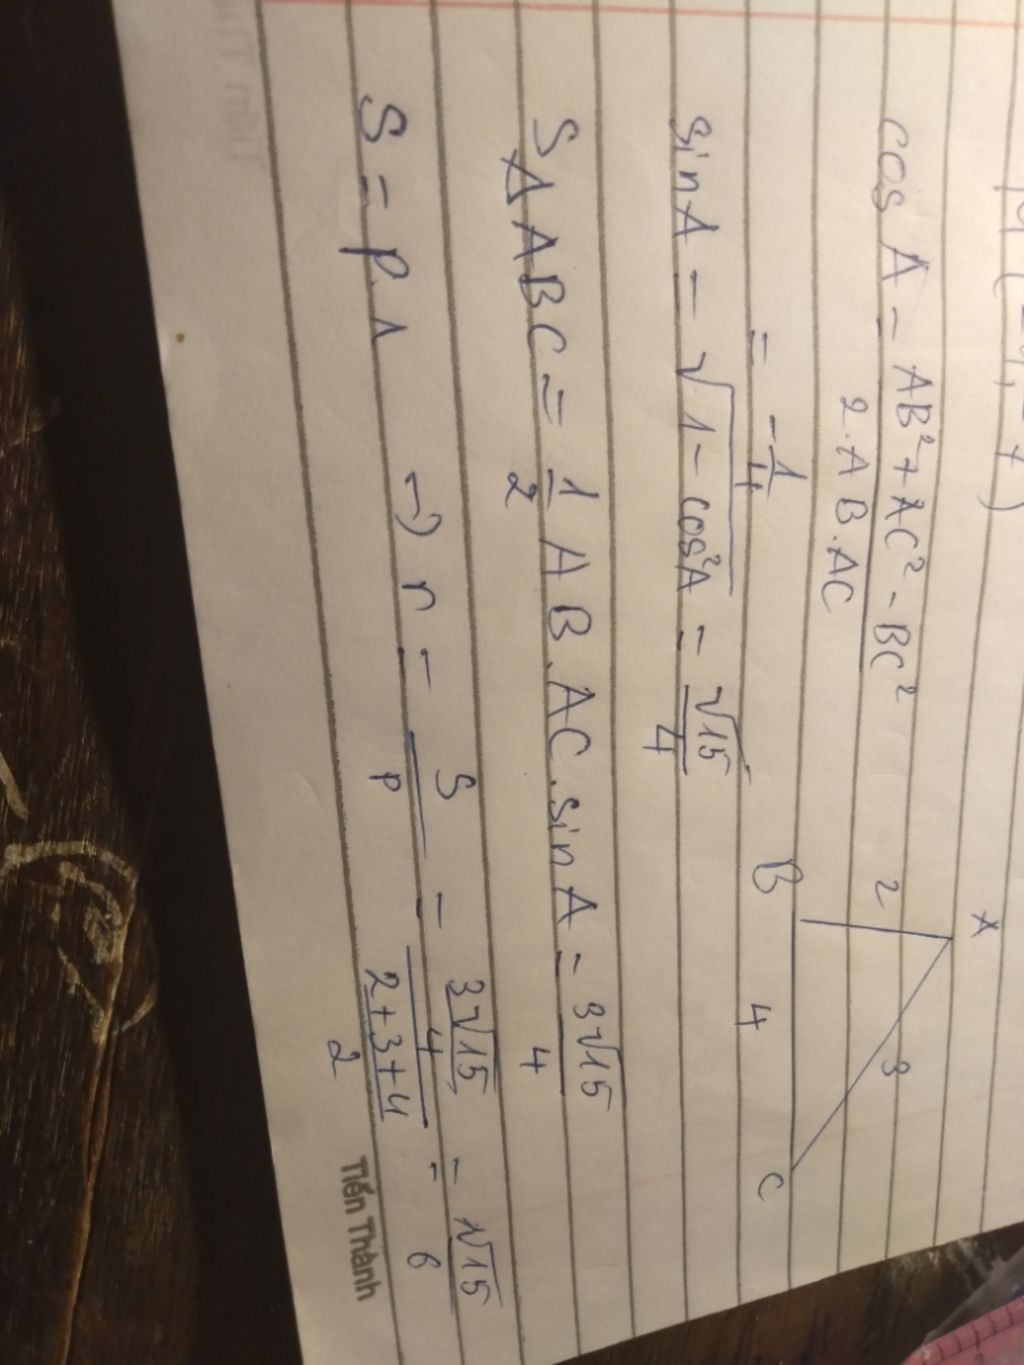 A
cos A = AB² + AC² - BC² / 2.AB.AC
2 3
= -1/4
B 4 C
sin A = √(1 - cos²A) = √15/4
SΔABC = 1/2 AB.AC.sin A = 3√15/4
S = p.r → r = S/p = (3√15/4)/((2+3+4)/2) = √15/6
Tiến Thành